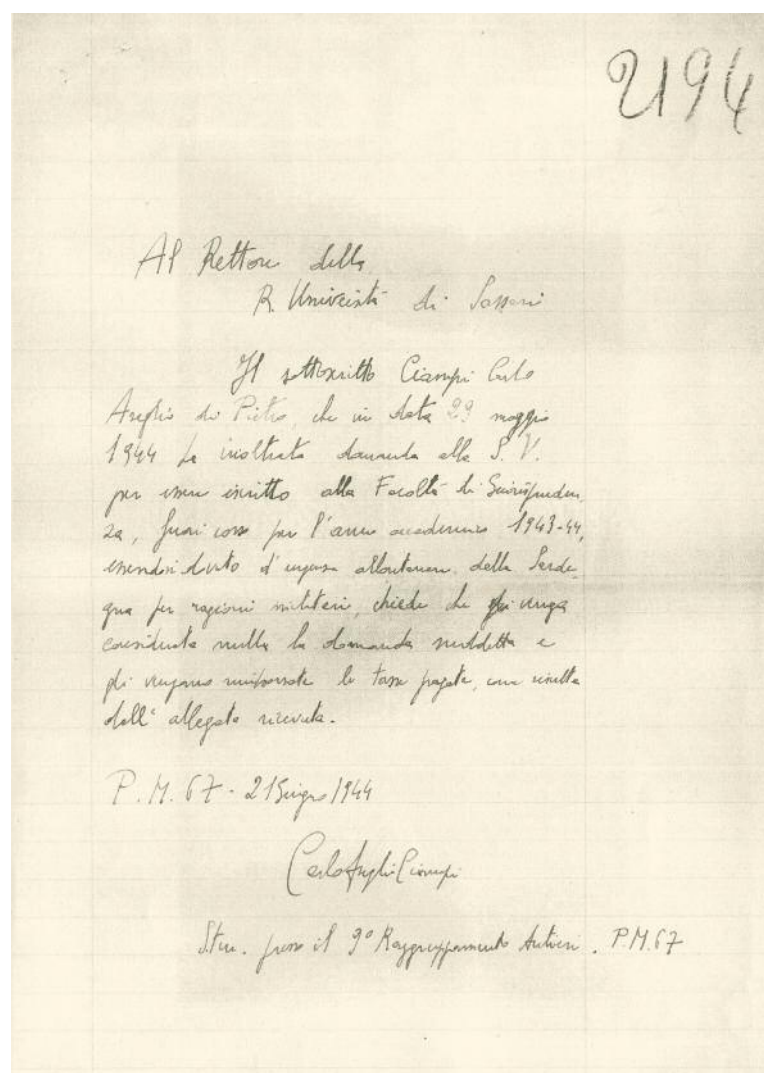 2194
Al Rettore della
R. Università di Sassari
Il sottoscritto Ciampi Carlo
Azeglio di Pietro, che in data 29 maggio
1944 ha inoltrato domanda alla S. V.
per essere iscritto alla Facoltà di Giurispruden-
za, fuori corso per l'anno accademico 1943-44,
essendosi dovuto d'urgenza allontanare dalla Sarde-
gna per ragioni militari, chiede che gli venga
considerata nulla la domanda suddetta e
gli vengano rimborsate le tasse pagate, come risulta
dall' allegata ricevuta.
P. M. 67 - 21 Giugno 1944
Carlo Azeglio Ciampi
S.ten. presso il 9° Raggruppamento Autieri. P.M. 67